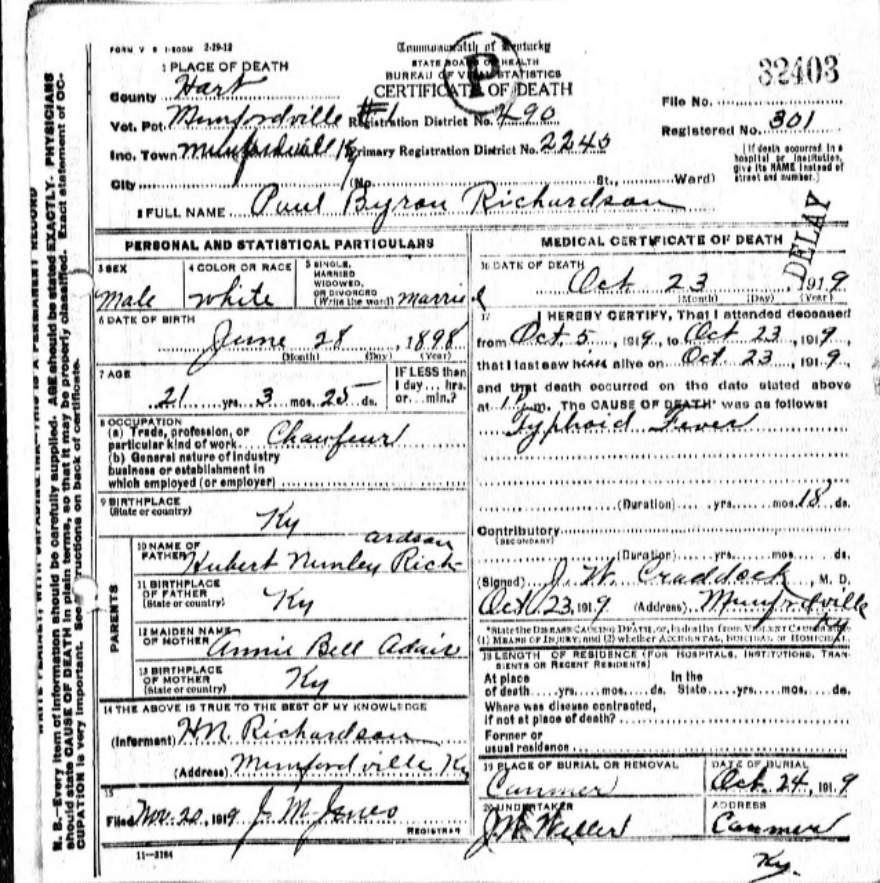 FORM V S 1-500M 2-19-12
Commonwealth of Kentucky
STATE BOARD OF HEALTH
BUREAU OF VITAL STATISTICS
CERTIFICATE OF DEATH
B
32403
1 PLACE OF DEATH
County Hart
Vot. Pct. Munfordville #1 Registration District No. 490
Inc. Town Munfordville Ky Primary Registration District No. 2245
City (No. St., Ward)
File No.
Registered No. 301
(If death occurred in a
hospital or institution,
give its NAME instead of
street and number.)
2 FULL NAME Paul Byron Richardson
DELAY
PERSONAL AND STATISTICAL PARTICULARS
3 SEX
Male
4 COLOR OR RACE
white
5 SINGLE,
MARRIED
WIDOWED,
OR DIVORCED
(Write the word) married
6 DATE OF BIRTH
June 28, 1898
(Month) (Day) (Year)
7 AGE
21 yrs. 3 mos. 25 ds.
IF LESS than
1 day... hrs.
or... min.?
8 OCCUPATION
(a) Trade, profession, or
particular kind of work Chawfeur
(b) General nature of industry
business or establishment in
which employed (or employer)
9 BIRTHPLACE
(State or country)
Ky
PARENTS
10 NAME OF
FATHER Hubert Nunley Rich-
ardson
11 BIRTHPLACE
OF FATHER
(State or country) Ky
12 MAIDEN NAME
OF MOTHER Annie Bell Adair
13 BIRTHPLACE
OF MOTHER
(State or country) Ky
14 THE ABOVE IS TRUE TO THE BEST OF MY KNOWLEDGE
(Informant) H.N. Richardson
(Address) Munfordville Ky
15
Filed Nov. 20, 1919 J. M. Jones
REGISTRAR
11-3184
MEDICAL CERTIFICATE OF DEATH
16 DATE OF DEATH
Oct 23, 1919
(Month) (Day) (Year)
17 I HEREBY CERTIFY, That I attended deceased
from Oct. 5, 1919, to Oct 23, 1919,
that I last saw him alive on Oct. 23, 1919.
and that death occurred on the date stated above
at m. The CAUSE OF DEATH* was as follows:
Typhoid Fever
(Duration) yrs. mos. 18 ds.
Contributory
(SECONDARY)
(Duration) yrs. mos. ds.
(Signed) J. W. Craddock, M. D.
Oct. 23, 1919 (Address) Munfordville
Ky
*State the DISEASE CAUSING DEATH, or, in deaths from VIOLENT CAUSES
(1) MEANS OF INJURY; and (2) whether ACCIDENTAL, SUICIDAL or HOMICIDAL.
18 LENGTH OF RESIDENCE (FOR HOSPITALS, INSTITUTIONS, TRAN-
SIENTS OR RECENT RESIDENTS)
At place In the
of death yrs. mos. ds. State yrs. mos. ds.
Where was disease contracted,
if not at place of death?
Former or
usual residence
19 PLACE OF BURIAL OR REMOVAL
Canmer
DATE OF BURIAL
Oct. 24, 1919
20 UNDERTAKER
J.W. Weller
ADDRESS
Canmer
Ky.
N. B.—Every item of information should be carefully supplied. AGE should be stated EXACTLY. PHYSICIANS
should state CAUSE OF DEATH in plain terms, so that it may be properly classified. Exact statement of OC-
CUPATION is very important. See instructions on back of certificate.